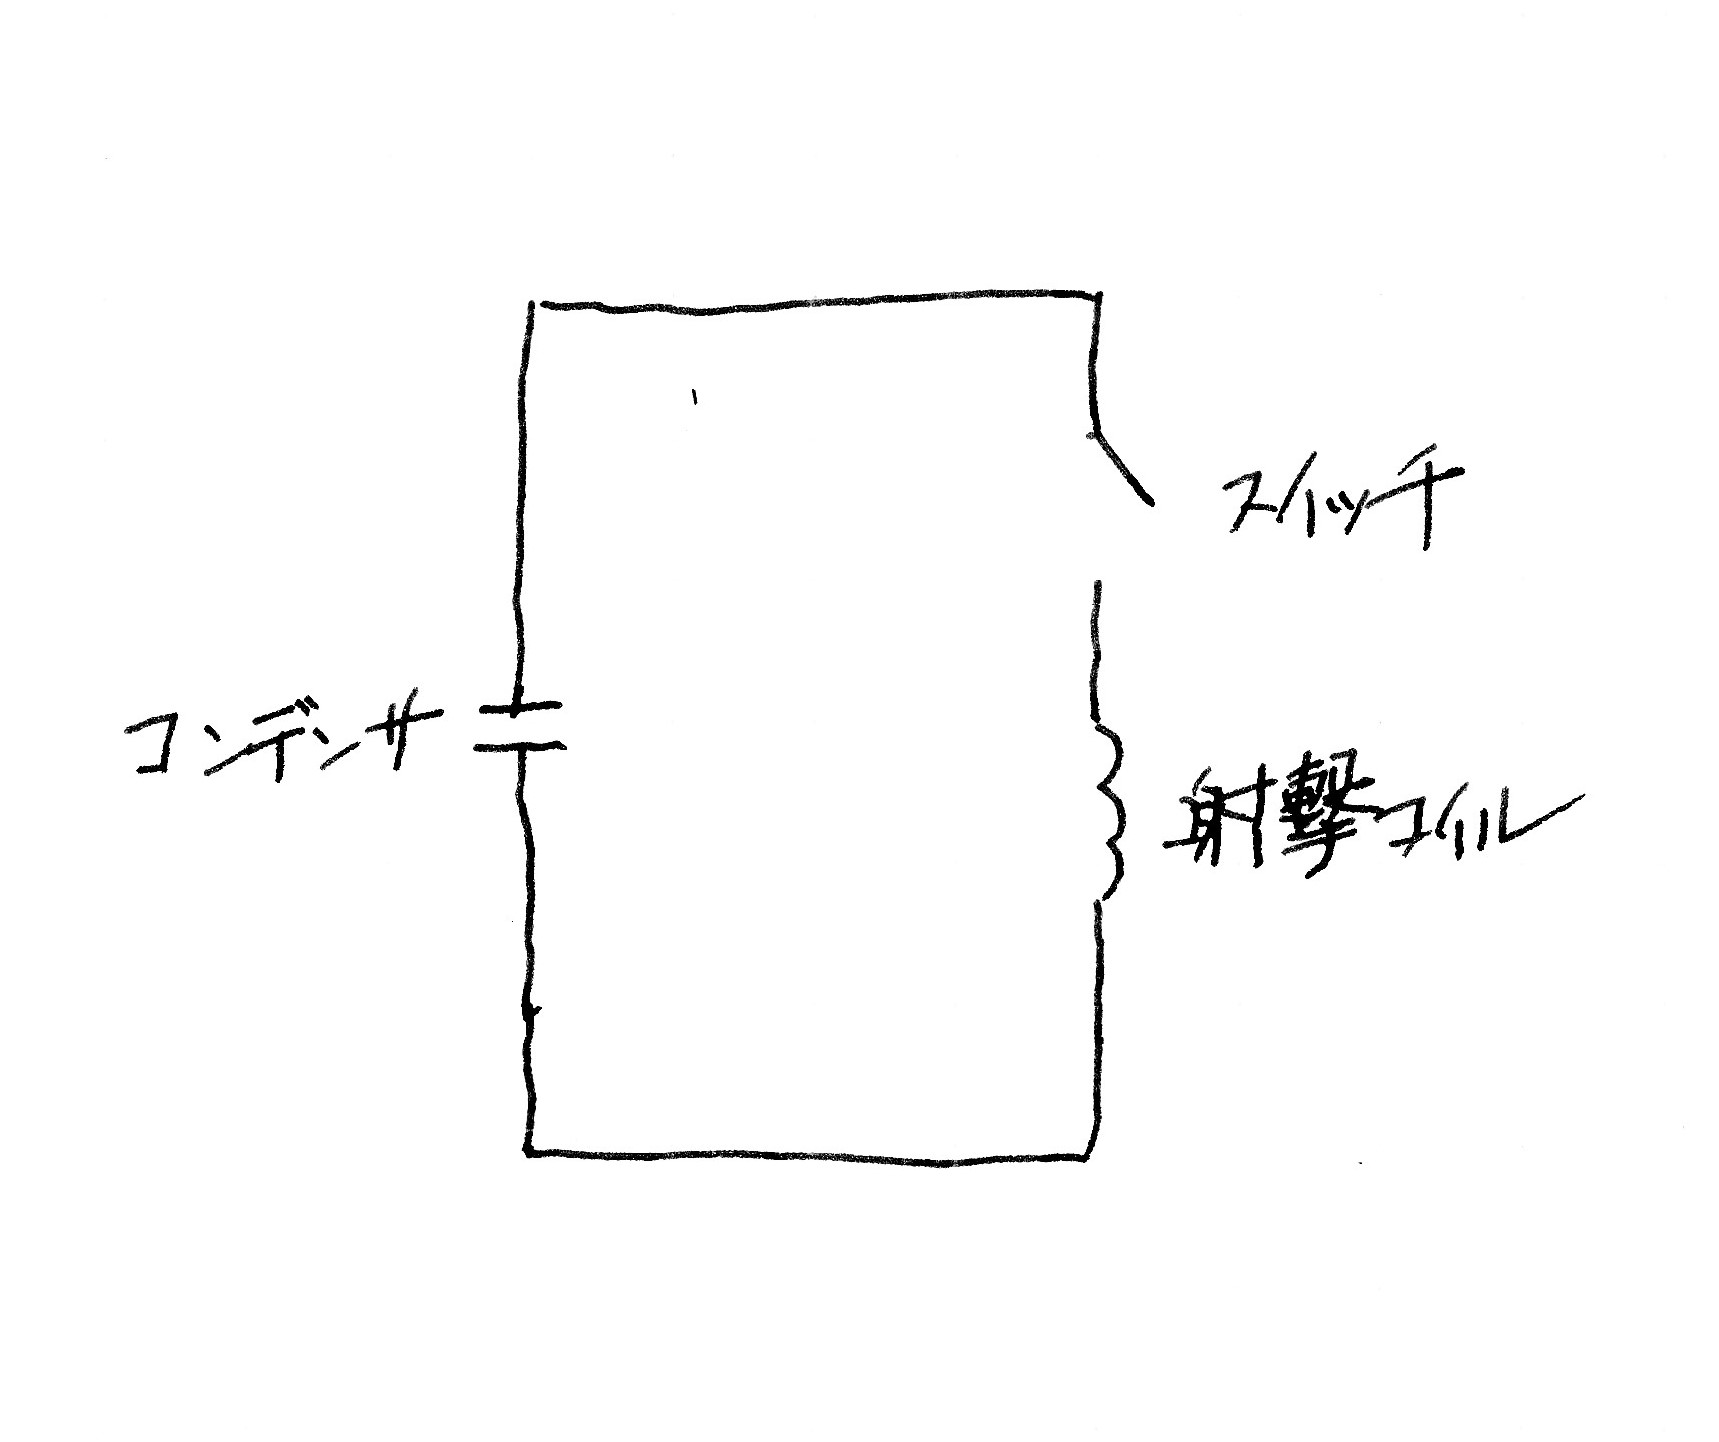 スイッチ
コンデンサ
射撃コイル